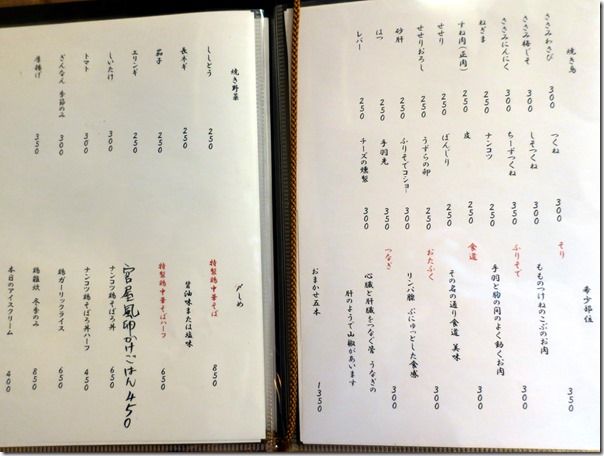 焼き鳥
ささみわさび 300
ささみ梅じそ 300
ささみにんにく 300
ねぎま 250
すね肉(正肉) 250
せせり 250
せせりおろし 250
砂肝 250
はつ 250
レバー 250
つくね 300
しそつくね 350
ちーずつくね 350
ナンコツ 250
皮 250
ぼんじり 250
うずらの卵 250
ふりそでコショー 300
手羽先 300
チーズの燻製 300
希少部位
そり
もものつけねのこぶのお肉 350
ふりそで
手羽と胸の間のよく動くお肉 300
食道
その名の通り食道 美味 300
おたふく
リンパ腺 ぷにゅっとした食感 300
つなぎ
心臓と肝臓をつなぐ管 うなぎの
肝のようで山椒があいます 300
おまかせ五本 1350
焼き野菜
ししとう 250
長ネギ 250
茄子 250
エリンギ 250
しいたけ 300
トマト 300
ぎんなん 季節のみ 300
厚揚げ 350
〆しめ
特製鶏中華そば 850
醤油味または塩味
特製鶏中華そばハーフ 650
宮崎風卵かけごはん 450
ナンコツ鶏そぼろ丼 650
ナンコツ鶏そぼろ丼ハーフ 450
鶏ガーリックライス 650
鶏雑炊 冬季のみ 850
本日のアイスクリーム 400